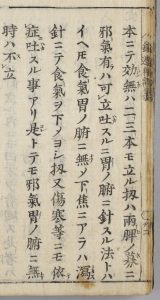 本ニテ効無ハ二三本モ立ル扨ハ両脾ノ募ニ
邪氣有ハ可立吐スルニ胃ノ腑ニ針スル法トハ
イヘトモ食氣胃ノ腑ニ無ノ下焦ニアラハ瀉
針ニテ食氣ヲ下ノヨシ扨又傷寒等ニモ依
症吐スル事アリ是トテモ邪氣胃ノ腑ニ無
時ハ不立